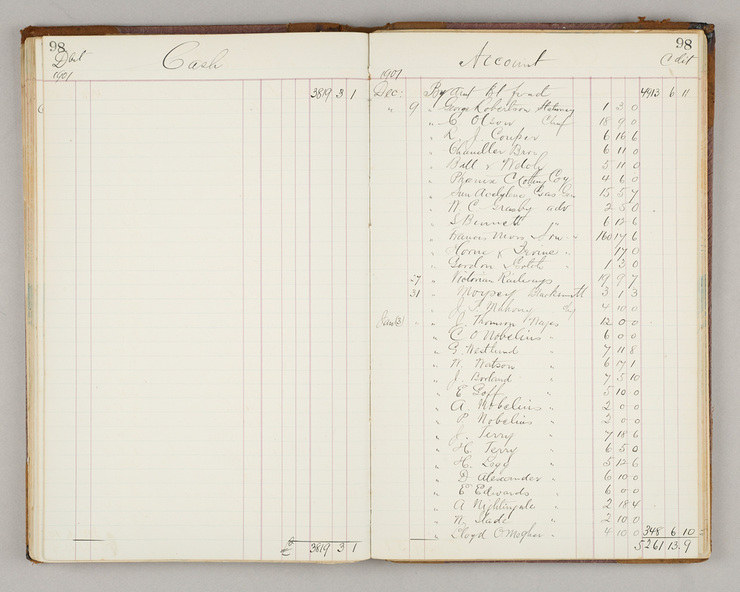 98
Debit
Cash
1901
3819 3 1
3819 3 1
98
Account
Cdit
1907
Dec: By Amt Bt fwd 4913 6 11
" 9 " George Robertson Stationery 1 3 0
" C Olson Chaf 18 9 0
" R. J. Couper 6 16 6
" Chandler Bros 6 11 0
" Ball & 5 11 0
" Phoenix Clothing Coy 4 6 0
" Gas Co 15 5 7
" N. C. Grasby adv 2 5 0
" S Bennett " 6 12 6
" Francis Moss & Son " 160 17 6
" Horne & Irvine " 17 0
" Gordon & Gotch " 1 3 0
" Victorian Railways 19 9 7
31 " Blacksmith 3 1 3
" J. Mahony 4 10 0
Jan 31 " J. Thomson Wages 12 0 0
" C. O. Nobelius " 6 0 0
" G. Westlund " 7 11 8
" W. Watson " 6 17 1
" J. Borland " 7 5 10
" E Goff " 5 10 0
" A. Nobelius " 2 0 0
" P. Nobelius " 3 0 0
" J. Terry " 7 18 6
" H. Terry " 6 5 0
" H. Legg " 5 12 6
" D. Alexander " 6 10 0
" E. Edwards " 6 0 0
" A Nightingale " 2 18 4
" N. Slade " 2 10 0
" Lloyd " 4 10 0 348 6 10
5261 13 9